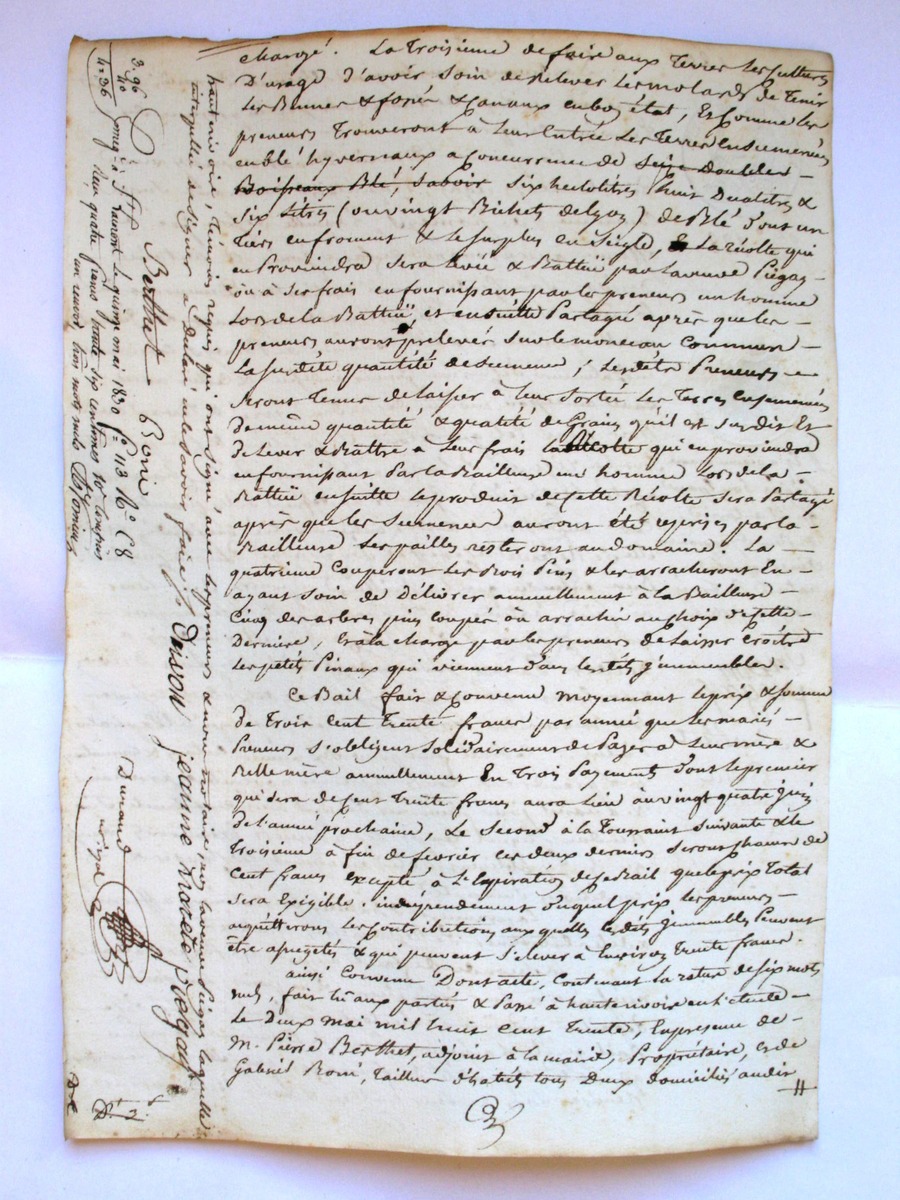 chargé. La Troisième de faire aux Terres les cultures
D'usage d'avoir soin de Relever les molards de Tenir
les Bornes & fossés & Canaux en bon état, Et Comme les
preneurs Trouveront à Leur Entrée Les Terres Ensemencées
en blé hyvernaux a Concurrence de Seize Doubles
Boisseaux Blé, savoir six hectolitres huit Dcalitres &
six Litres (ou vingt Bichets de Lyon) de Blé Dont un
Tiers en froment & le surplus en Seigle, La récolte qui
en Proviendra sera levée & Battüe par la veuve Piégay
ou à ses frais en fournissant par les preneurs un homme
Lors de la Battüe, et ensuitte Partagé après que les
preneurs auront prélevés sur le monceau Commun
La susdite quantité de semence ; Lesdits Preneurs
seront Tenus de laisser à leur Sortie les Terres ensemencées
de même quantité & qualité de Grains qu'il est susdit Et
de Lever & Battre à Leur frais la Récolte qui en proviendra
en fournissant Par la Bailleuse un homme Lors de la
Battüe ensuitte le produit de cette Récolte sera Partagé
après que les Semences auront été reprises par la
Bailleuse les pailles resteront au domaine. La
quatrième Couperont Les Bois Pins & les arracheront En
ayant soin de Délivrer annuellement à la Bailleuse
Cinq des arbres pins coupés ou arrachés au choix de cette
Dernière, Et à la charge par les preneurs de Laisser croître
les petits Pinaux qui viennent dans lesdits Jmmeubles.
Ce Bail fait & Convenu moyennant le prix & somme
de Trois Cent Trente francs par année que les mariés
Preneurs s'obligent Solidairement de Payer à Leur mère &
Belle mère annuellement En Trois Payements Dont le premier
qui sera de Cent Trente francs aura Lieu au vingt quatre Juin
de l'année prochaine, Le Second à la Toussaint suivante & le
Troisième à fin de fevrier ces deux derniers seront chacun de
Cent francs excepté à L'Expiration de ce Bail que le prix Total
sera Exigible. indépendement duquel prix les preneurs
acquitteront les Contributions aux quelles lesdits Jmmeubles Peuvent
être assujetis & qui peuvent s'élever à Environ Trente francs.
ainsi Convenu Dont acte, Contenant la rature de six mots
nuls, fait lû aux parties & Passé à hauterivoire en l'étude
Le Deux mai mil huit cent trente, En presence de
M. Pierre Berthet, adjoint à la mairie, Propriétaire, & de
Gabriel Boni, Tailleur d'habits tous Deux domiciliés audit
hauterivoire, témoins requis qui ont signé avec les preneurs & nous notaire, non la veuve Piégay laquelle
interpellée de signer a Déclaré ne le savoir faire
Berthet Boni Deison jeanne marete piegay
Durand
notaire
St Laurent le quinze mai 1830 f° 113 R° C 8
Reçu quatre francs trente six centimes Dre Compris
un renvoi trois mots nuls
3.96
40
4.36